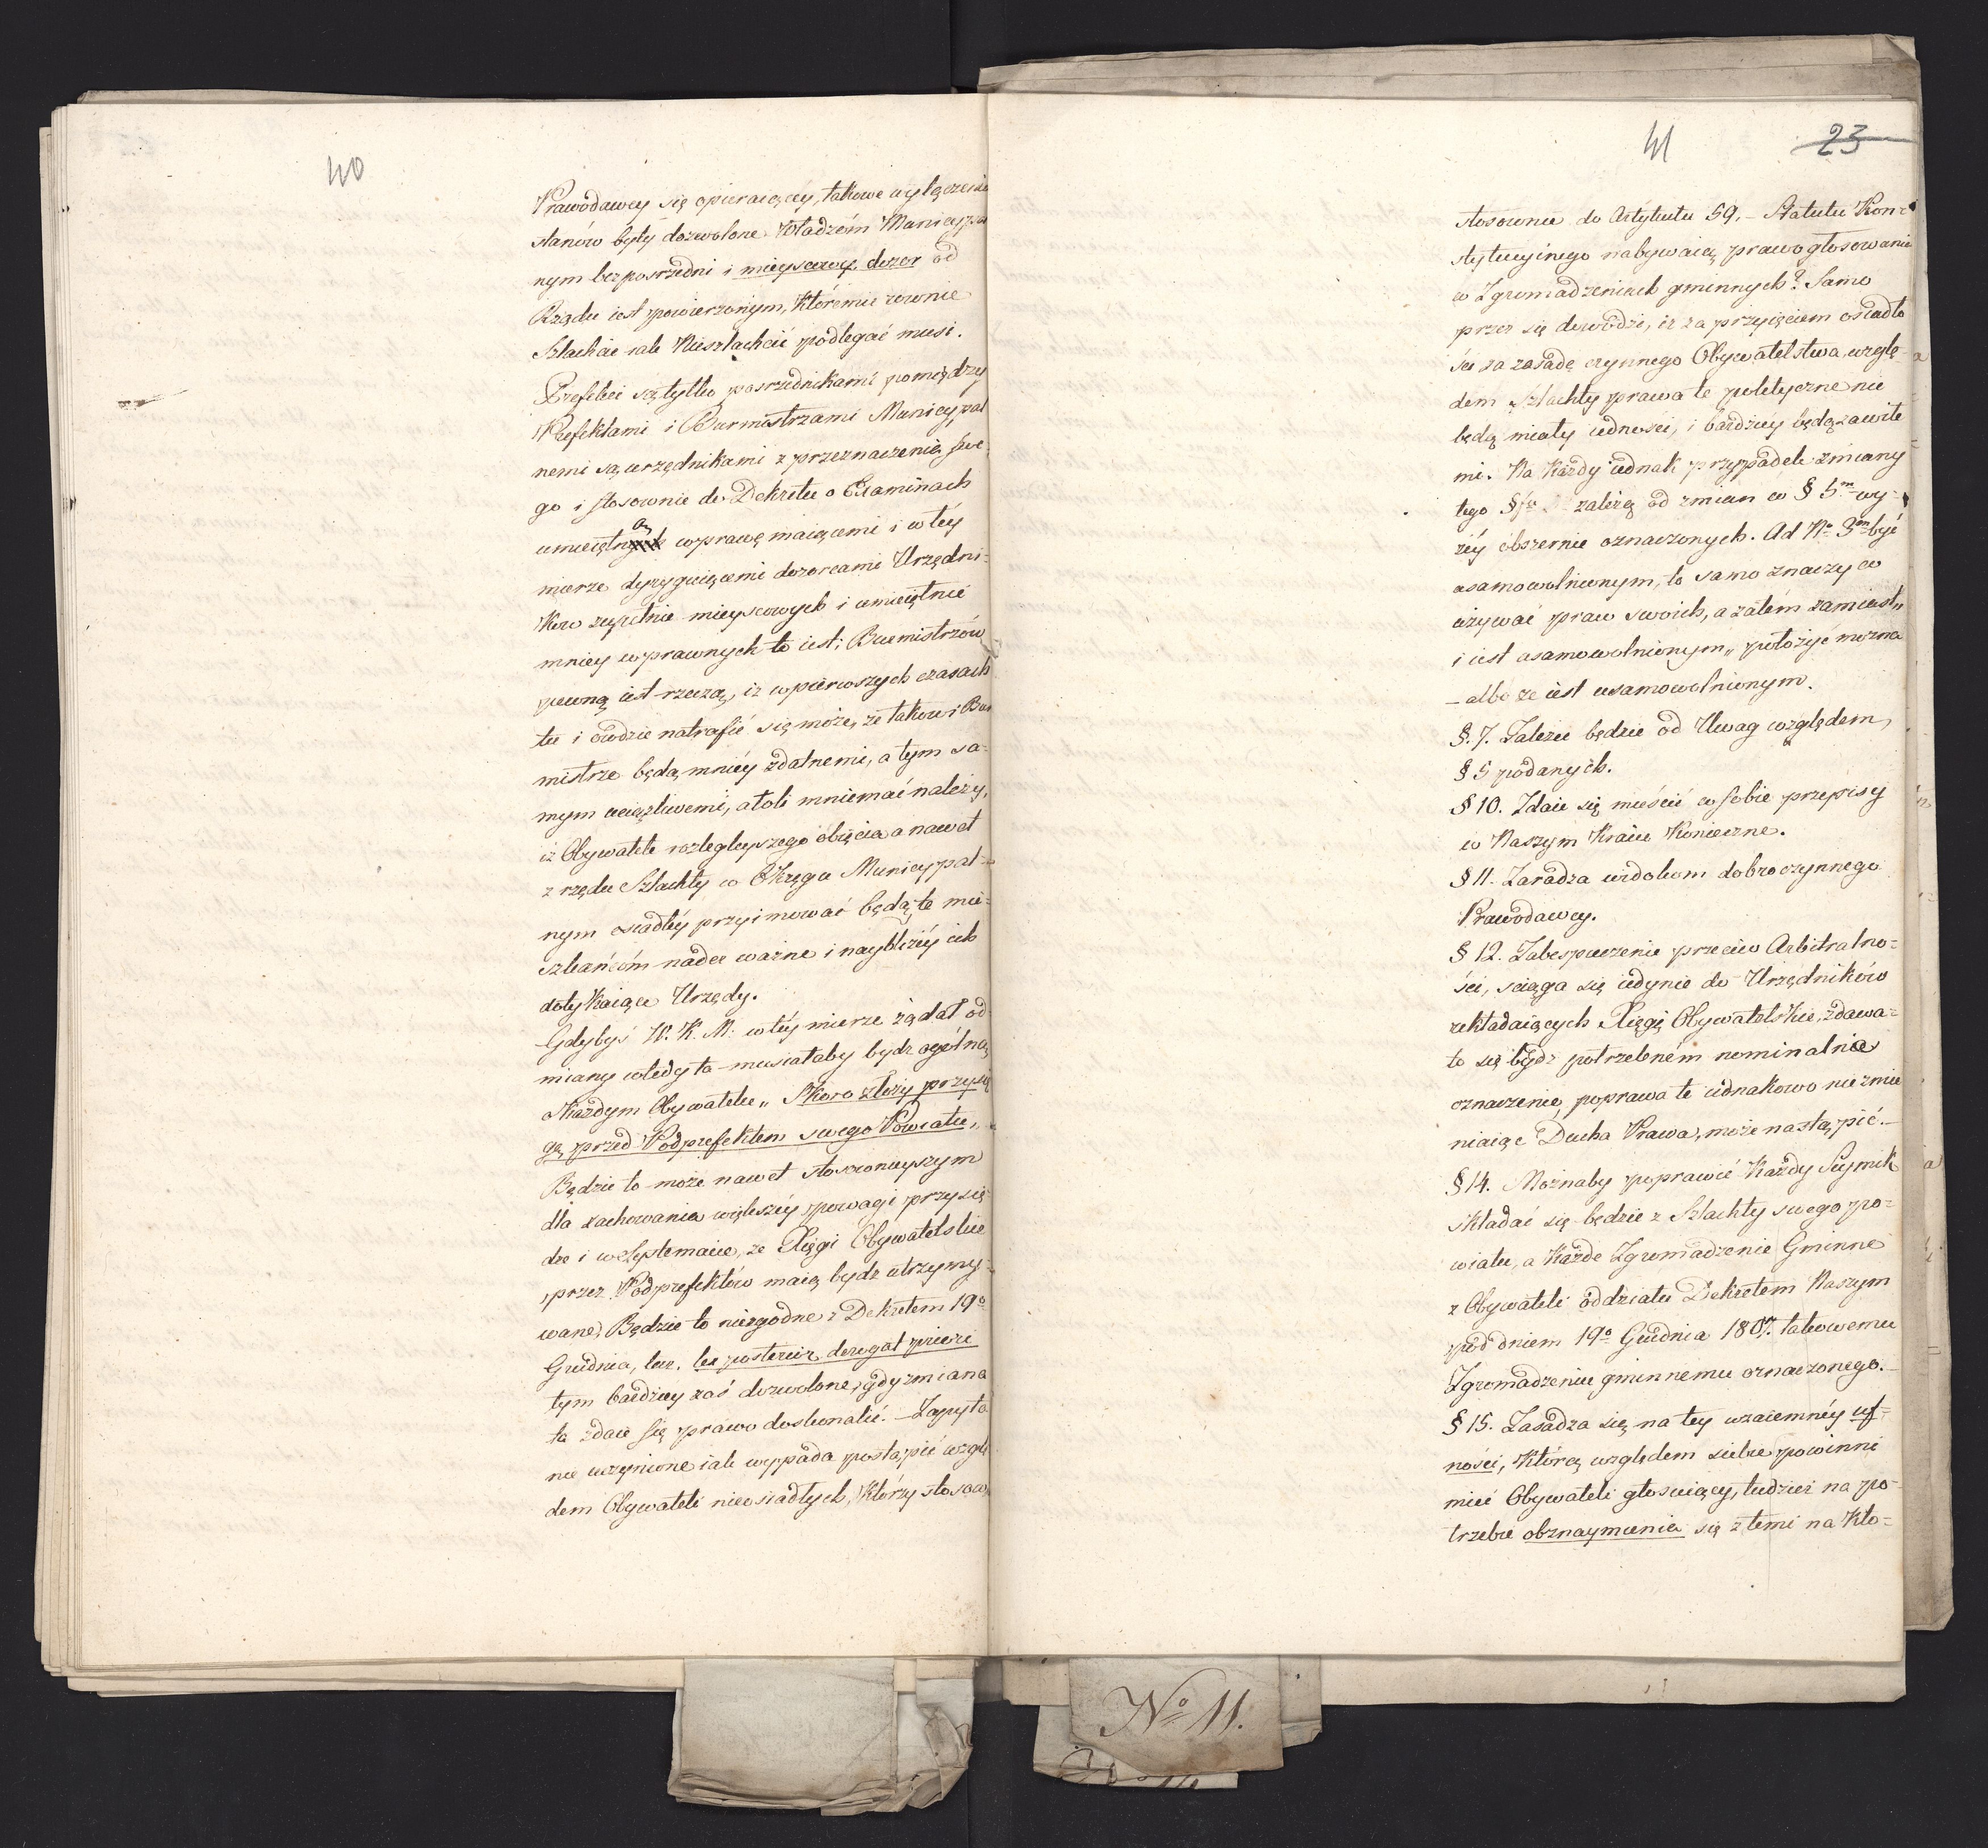 40
Prawodawcy się opieraiący, takowe wyłączenia
stanów były dozwolone. Władzóm Municypal
nym bezposrzedni i mieyscowy dozor od
Rządu iest powierzonym, któremu rownie
Szlachcic iak Nieszlachcić podlegać musi.
Prefekci są tylko posrzednikami pomiędzy
Prefektami i Burmistrzami Municypal
nemi są urzędnikami z przeznaczenia swe
go i stosownie do Dekretu o Examinach
umieiętną wprawę maiącemi i w téy
mierze dyryguiącemi dozorcami Urzędni=
kow zupełnie mieyscowych i umieiętnie
mniey wprawnych to iest; Burmistrzów
pewną iest rzeczą, iż w pierwszych czasach
tu i owdzie natrafić się może, że takowi Bur
mistrze będą mniéy zdatnemi, a tym sa=
mym uciążliwemi, atoli mniemać należy,
iż Obywatele rozlegleyszego obięcia a nawet
z rzędu Szlachty w Okręgu Municypal=
nym osiadłéy przyimować będą te mie=
szkańcóm nader ważne i nayblizéy ich
dotykaiące Urzędy.
Gdybyś W. K. M. w téy mierze żądał od
miany wtedy ta musiałaby bydz ogólną
o każdym Obywatelu „ Skoro złoży przysię
gę przed Podprefektem swego Powiatu„
Będzie to może nawet stosownieyszym
dla zachowania większéy powagi przysię
dze i w Systemacie, że Xięgi Obywatelskie
przez Podprefektów maią bydz utrzymy=
wane. Będzie to niezgodne z Dekretem 19º
Grudnia, lecz. lex posterior derogat priori
tym bardziey zaś dozwolone, gdy zmiana
ta zdaie się prawo doskonalić. – Zapyta
nie uczynione iak wypada postąpić wzglę
dem Obywateli nieosiadłych, którzy stosow
41 23
stosownie do Artykułu 59. – Statutu Kon=
stytucyinego nabywaią prawo głosowania
w Zgromadzeniach gminnych? Samo
przez się dowodzi, iż za przyięciem osiadło
ści za zasadę czynnego Obywatelstwa, wzglę
dem Szlachty prawa te polityczne nie
będą miały iednosci, i bardziéy będą zawiłe
mi. Na każdy iednak przypadek zmiany
tego §fu zależą od zmian w § 5m wy=
żéy obszernie oznaczonych. Ad Nº 3m być
usamowolnionym, to samo znaczy co
używać praw swoich, a zatém zamiast„
i iest usamowolnionym„ położyć można
– albo że iest usamowolnionym.
§. 7. Zależeć będzie od Uwag względem,
§ 5 podanych.
§ 10. Zdaie się mieścić w sobie przepisy
w Naszym Kraiu Konieczne.
§ 11. Zaradza widokom dobroczynnego
Prawodawcy.
§ 12. Zabespieczenie przeciw Arbitralno=
ści, sciąga się iedynie do Urzędników
układaiących Xięgę Obywatelskie, zdawa=
ło się bydz potrzebném nominalnie
oznaczenie, poprawa te iednakowo niezmie
niaiąc Ducha Prawa, może nastąpić. –
§ 14. Możnaby poprawić każdy Seymik
składać się będzie z Szlachty swego po=
wiatu, a każde Zgromadzenie Gminne
z Obywateli oddziału Dekretem Naszym
pod dniem 19º Grudnia 1807. takowemu
Zgromadzeniu gminnemu oznaczonego. –
§ 15. Zasadza się na tey wzaiemnéy uf=
ności, którą względem siebie powinni
mieć Obywateli głosuiący, tudzież na po=
trzebie obznaymienia się z temi na kto=
Nº 11.